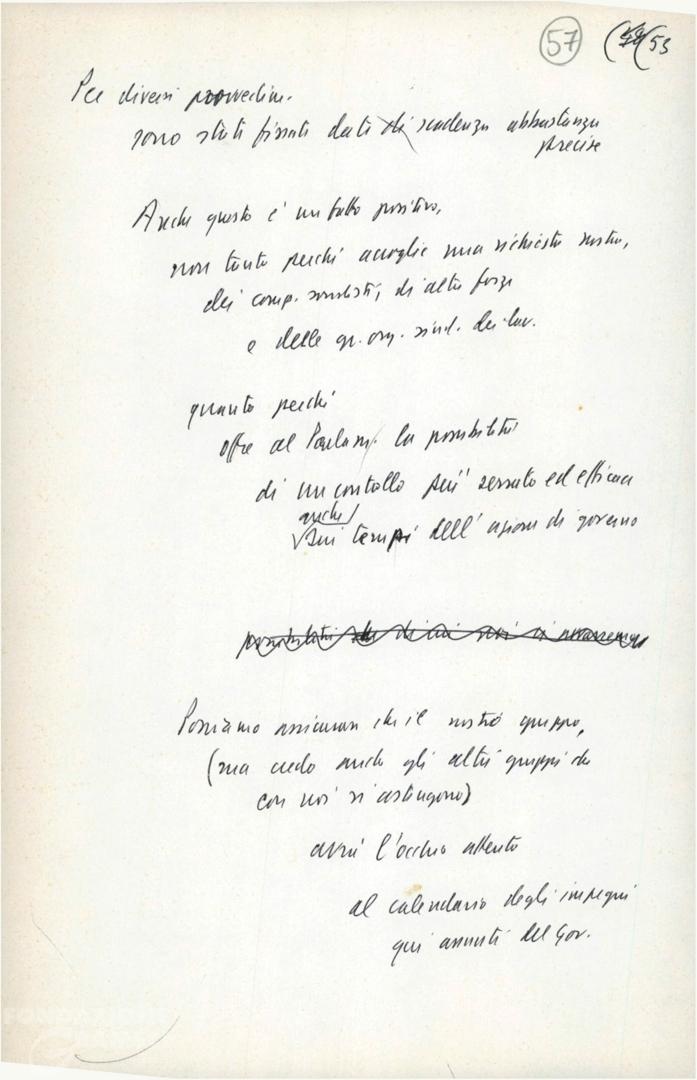 57 (53
Per diversi provvedim.
sono stati fissati date di scadenza abbastanza
precise
Anche questo è un fatto positivo,
non tanto perché accoglie una richiesta nostra,
dei comp. socialisti, di altre forze
e delle gr. org. sind. dei lav.
quanto perché
offre al Parlam. la possibilità
di un controllo più serrato ed efficace
anche
sui tempi dell'azione di governo
possibilità di cui noi ci avvarremo
Possiamo assicurare che il nostro gruppo,
(ma credo anche gli altri gruppi che
con noi si astengono)
avrà l'occhio attento
al calendario degli impegni
qui assunti del Gov.